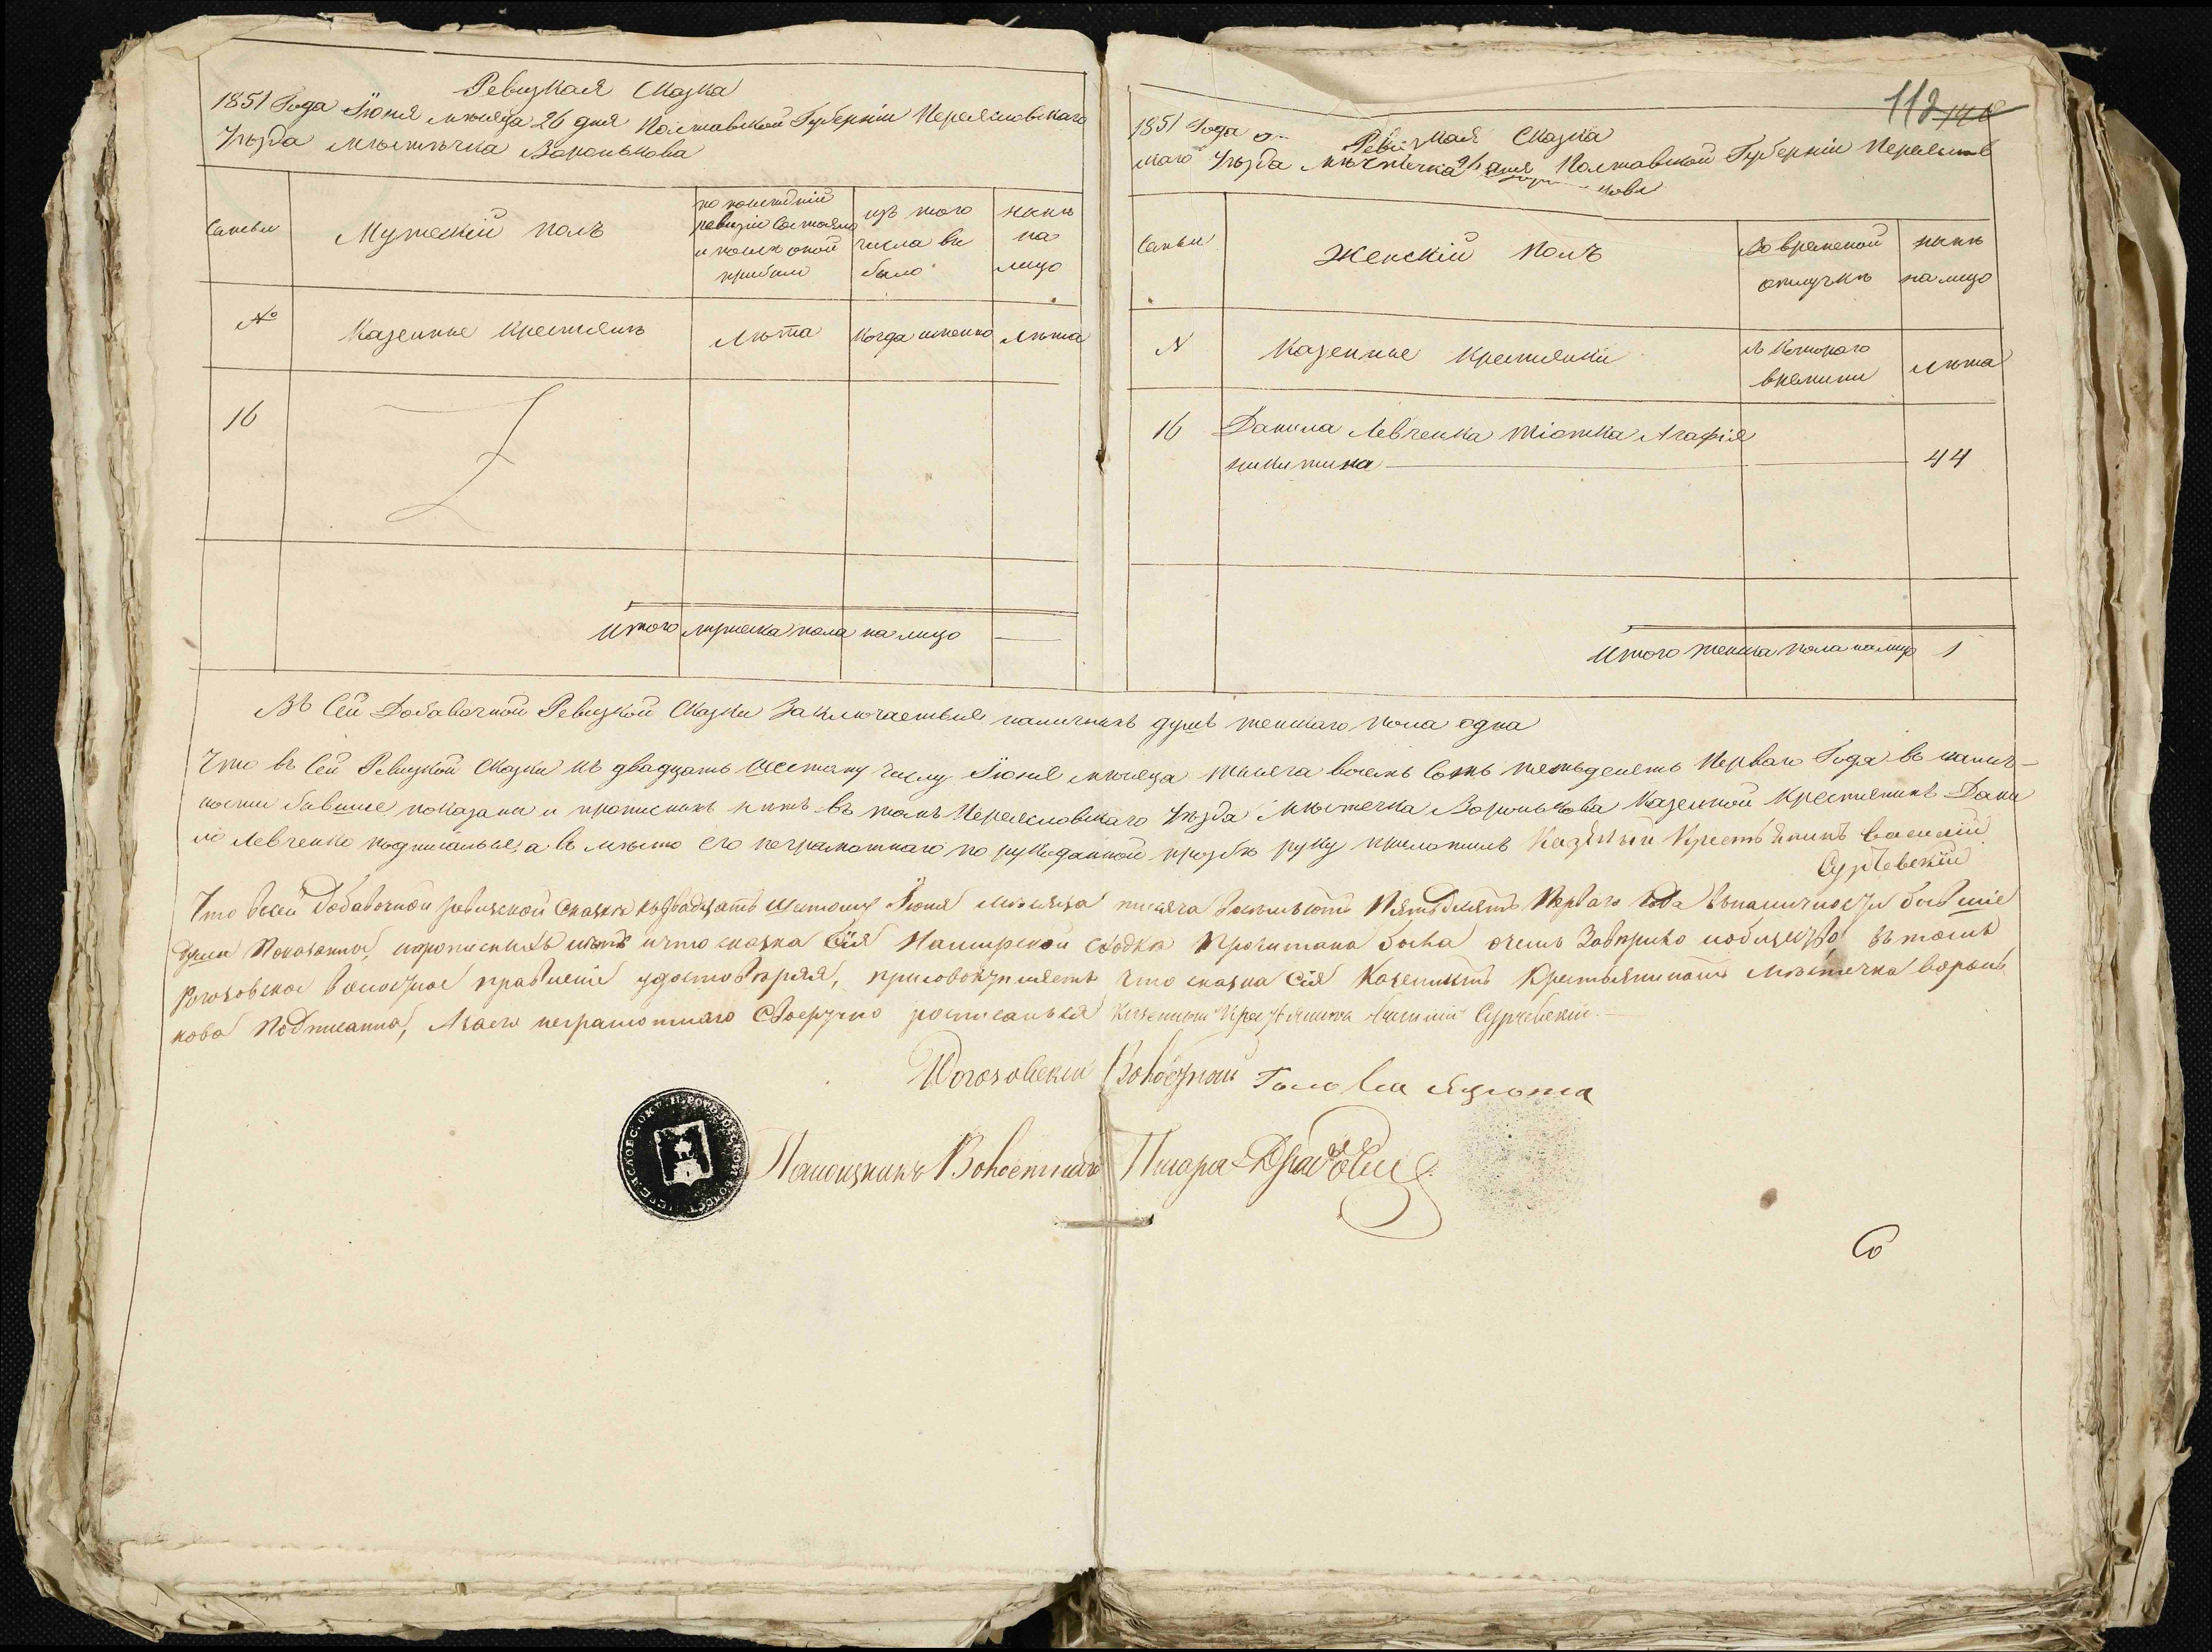 Ревизкая Сказка
1851 Года Іюня мѣсяца 26 дня Полтавской Губерніи Переясловскаго
Уѣзда мѣстѣчка Воронькова
Семьи
Мужескій полъ
по последній
ревизіи Состояло
и после оной
прибыло
изъ того
числа вы
было
нынѣ
на
лицо
№
Казенные крестьянѣ
Лѣта
Когда именно
Лѣта
16
Итого мужеска пола на лицо
112 140
Ревизкая Сказка
1851 Года 26 дня Полтавской Губерніи Переяслов
скаго Уѣзда мѣстѣчка
Семьи
Женскій полъ
Во временой
отлучкѣ
нынѣ
на лицо
N
Казенные крестьянки
съ Котораго
времини
Лѣта
16
Данила Левченка тіотка Агафія
никитина
44
Итого женска пола налицо 1
Въ Сей Добавочной Ревизкой Сказки Заключаеться наличныхъ душъ женскаго пола одна
Что въ Сей Ревизкой Сказки къ двадцать шестому числу Іюня мѣсяца тысяча восемь Сотъ пятьдесятъ Перваго Года въ налич-
ности бывшие показаны и прописныхъ нѣтъ въ томъ Переясловскаго Уѣзда мѣстечка Воронькова Казенной Крестянинъ Дани
ло Левченко подписалься, а въ мѣсто его неграмотнаго по рукоданной прозбѣ руку приложилъ Казѣный Крестьянинъ Василій
Сурчевскій
Что всей Добавочной ревизской Сказкѣ къдвадцать шестому Іюня мѣсяца тысяча восемьсотъ Пятьдесятъ Перваго Года въналичности бывшіе
души Показанны, ипрописныхъ нѣтъ ичто сказка Сія Намирской сходкѣ Прочитана была въ томъ
Рогозовское волостное правленіе удостовѣряя, присовокупляетъ что сказка Сія Казеннымъ Крестьяниномъ Мѣстечка Воронь
кова Подписанна, Азаего неграмотнаго Своеручно росписалься казенный Крестьянинъ Василій Сурчевскій
Рогозовскій Волостной Голова
Помощникъ Волостнаго Писаря